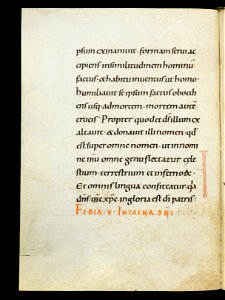 psum exinaniuit · formam serui ac
cipiens · insimilitudinem hominū
factus · & habitu inuentus ut homo ·
humiliauit se ipsum factus oboedi
ens usq; admortem · mortem autē
crucis · Propter quod et dš illum ex
altauit · & donauit illi nomen · qđ
est super omne nomen · ut in nomi
ne ihu omne genu flectatur cęle
stium · terrestrium et infernorū ·
Et omnis lingua confiteatur q̄a
dn̄s ihc xp̄c in gloria est dī patris ·
FERIA · V · IN CAENA DN̄I